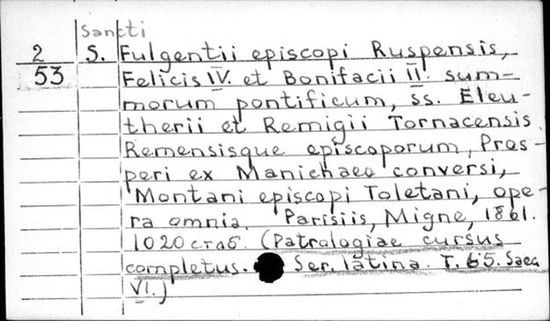 Sancti
2 S. Fulgentii episcopi Ruspensis,
53 Felicis IV. et Bonifacii II. sum-
morum pontificum, ss. Eleu-
therii et Remigii Tornacensis
Remensisque episcoporum, Pros-
peri ex Manichaeo conversi,
Montani episcopi Toletani, ope-
ra omnia. Parisiis, Migne, 1861.
1020 стаб. (Patrologiae cursus
completus. Ser. latina. T. 65. Saec.
VI.)